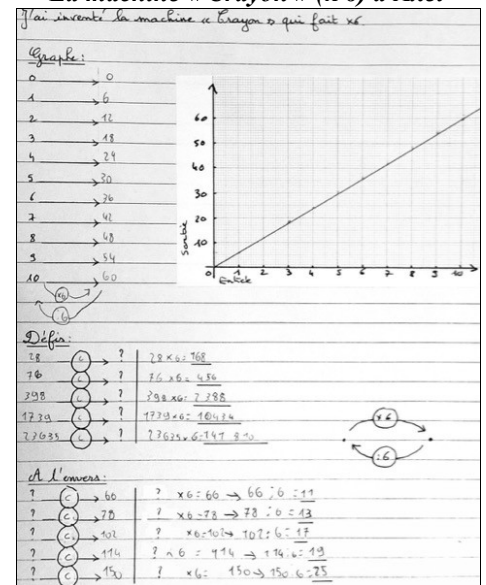 La machine « Crayon » (x 6)
J'ai inventé la machine « Crayon » qui fait x6.
Graphe :
0 → 0
1 → 6
2 → 12
3 → 18
4 → 24
5 → 30
6 → 36
7 → 42
8 → 48
9 → 54
10 → 60
x6
6
60
50
40
30
20
10
0 1 2 3 4 5 6 7 8 9 10
Sortie
Entrée
Défis :
28 C → ? 28 x 6 = 168
76 C → ? 76 x 6 = 456
398 C → ? 398 x 6 = 2 388
1739 C → ? 1739 x 6 = 10434
23635 C → ? 23635 x 6 = 141 810
x 6
: 6
A l'envers :
? C → 66 ? x 6 = 66 → 66 : 6 = 11
? C → 78 ? x 6 = 78 → 78 : 6 = 13
? C → 102 ? x 6 = 102 → 102 : 6 = 17
? C → 114 ? x 6 = 114 → 114 : 6 = 19
? C → 150 ? x 6 = 150 → 150 : 6 = 25